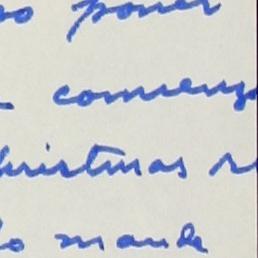 so poner
comienz
hristmas
lo mande